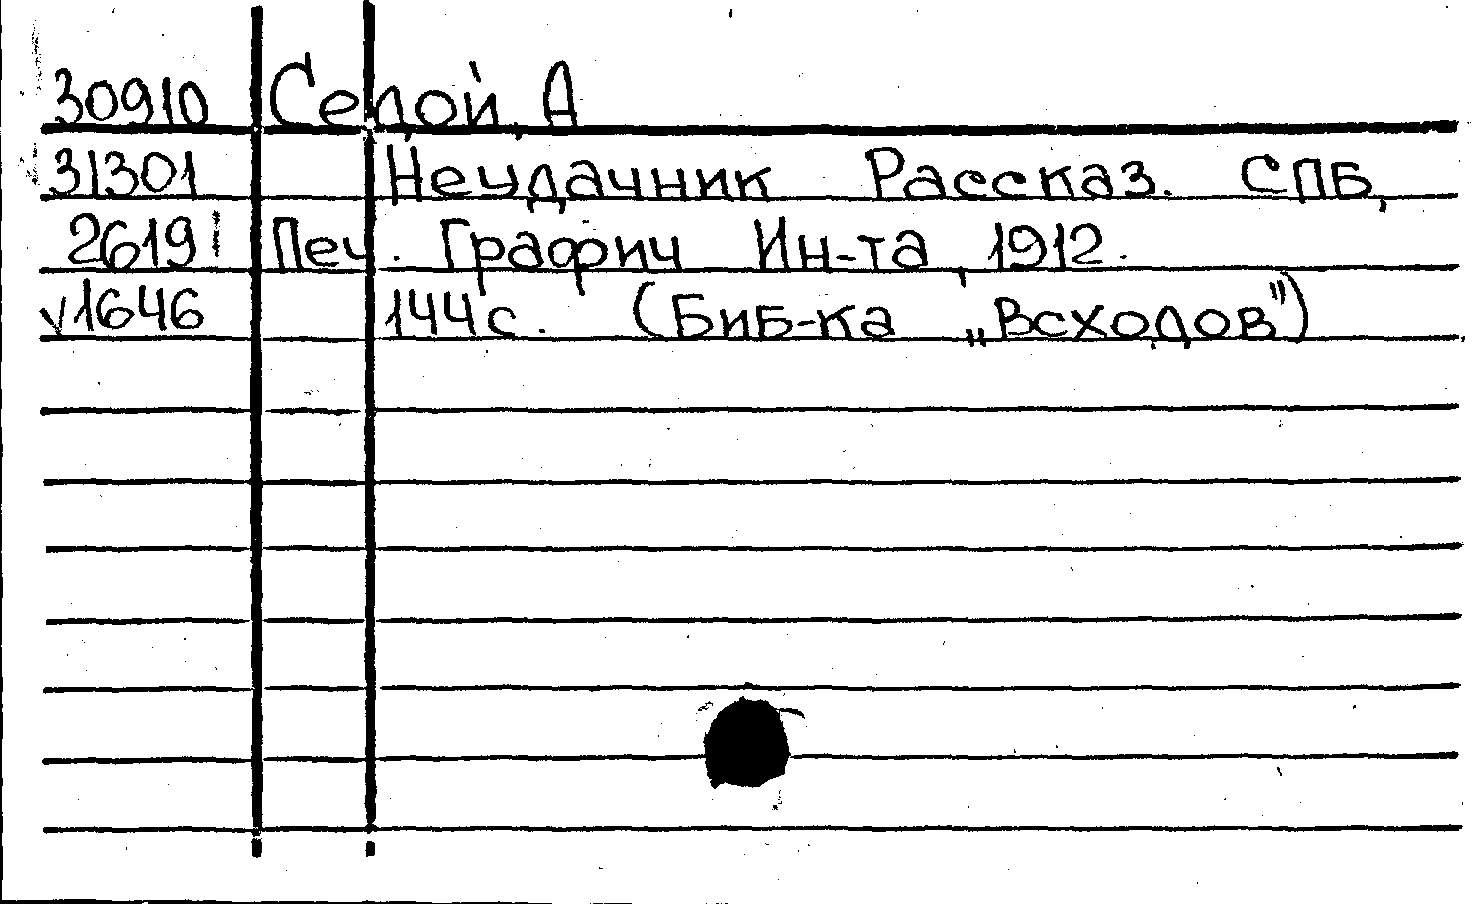 30910 Седой, А
31301 Неудачник Рассказ. СПБ,
2619 Печ. Графич Ин-та, 1912.
v1646 144с. (Биб-ка „Всходов")